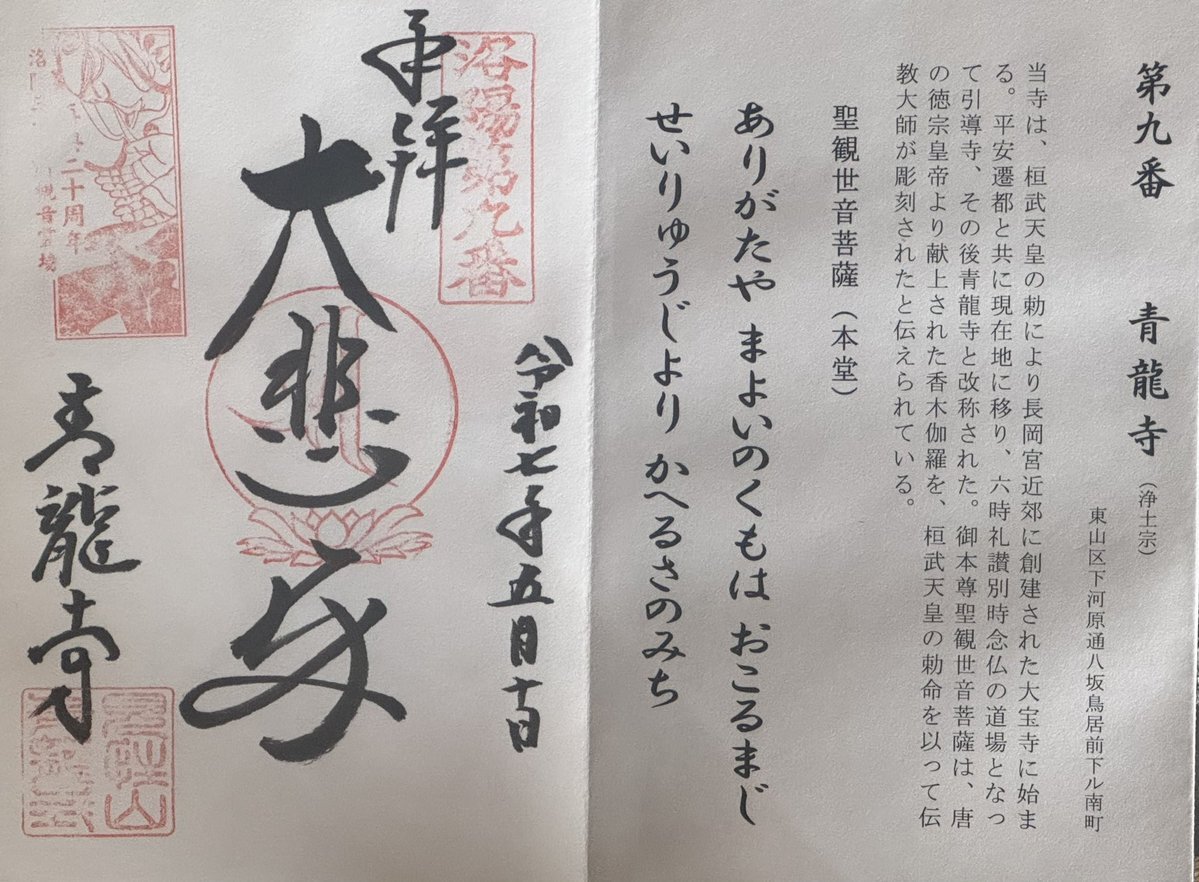 第九番 青龍寺（浄土宗）
東山区下河原通八坂鳥居前下ル南町
当寺は、桓武天皇の勅により長岡宮近郊に創建された大宝寺に始ま
る。平安遷都と共に現在地に移り、六時礼讃別時念仏の道場となっ
て引導寺、その後青龍寺と改称された。御本尊聖観世音菩薩は、唐
の徳宗皇帝より献上された香木伽羅を、桓武天皇の勅命を以って伝
教大師が彫刻されたと伝えられている。
聖観世音菩薩（本堂）
ありがたや まよいのくもは おこるまじ
せいりゅうじより かへるさのみち
洛陽第九番
奉拝
令和七年五月十日
大悲
青龍寺
二十周年
観音霊場